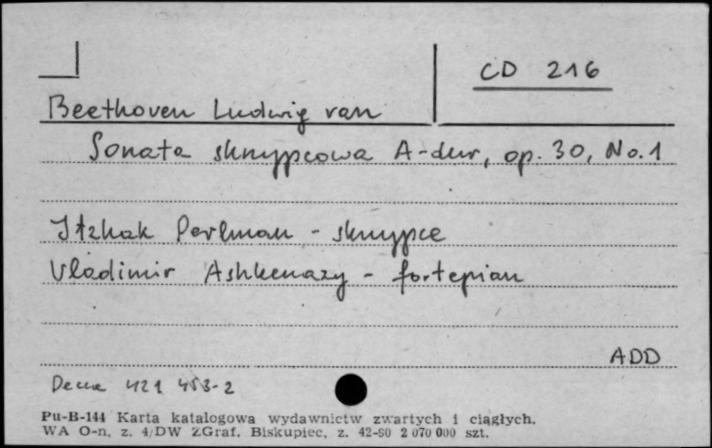 CD 216
Beethoven Ludwig van
Sonata skrzypcowa A-dur, op. 30, No. 1
Itzhak Perlman - skrzypce
Vladimir Ashkenazy - fortepian
ADD
Decca 421 453-2
Pu-B-144 Karta katalogowa wydawnictw zwartych i ciągłych.
WA O-n, z. 4/DW ZGraf. Biskupiec, z. 42-80 2 070 000 szt.